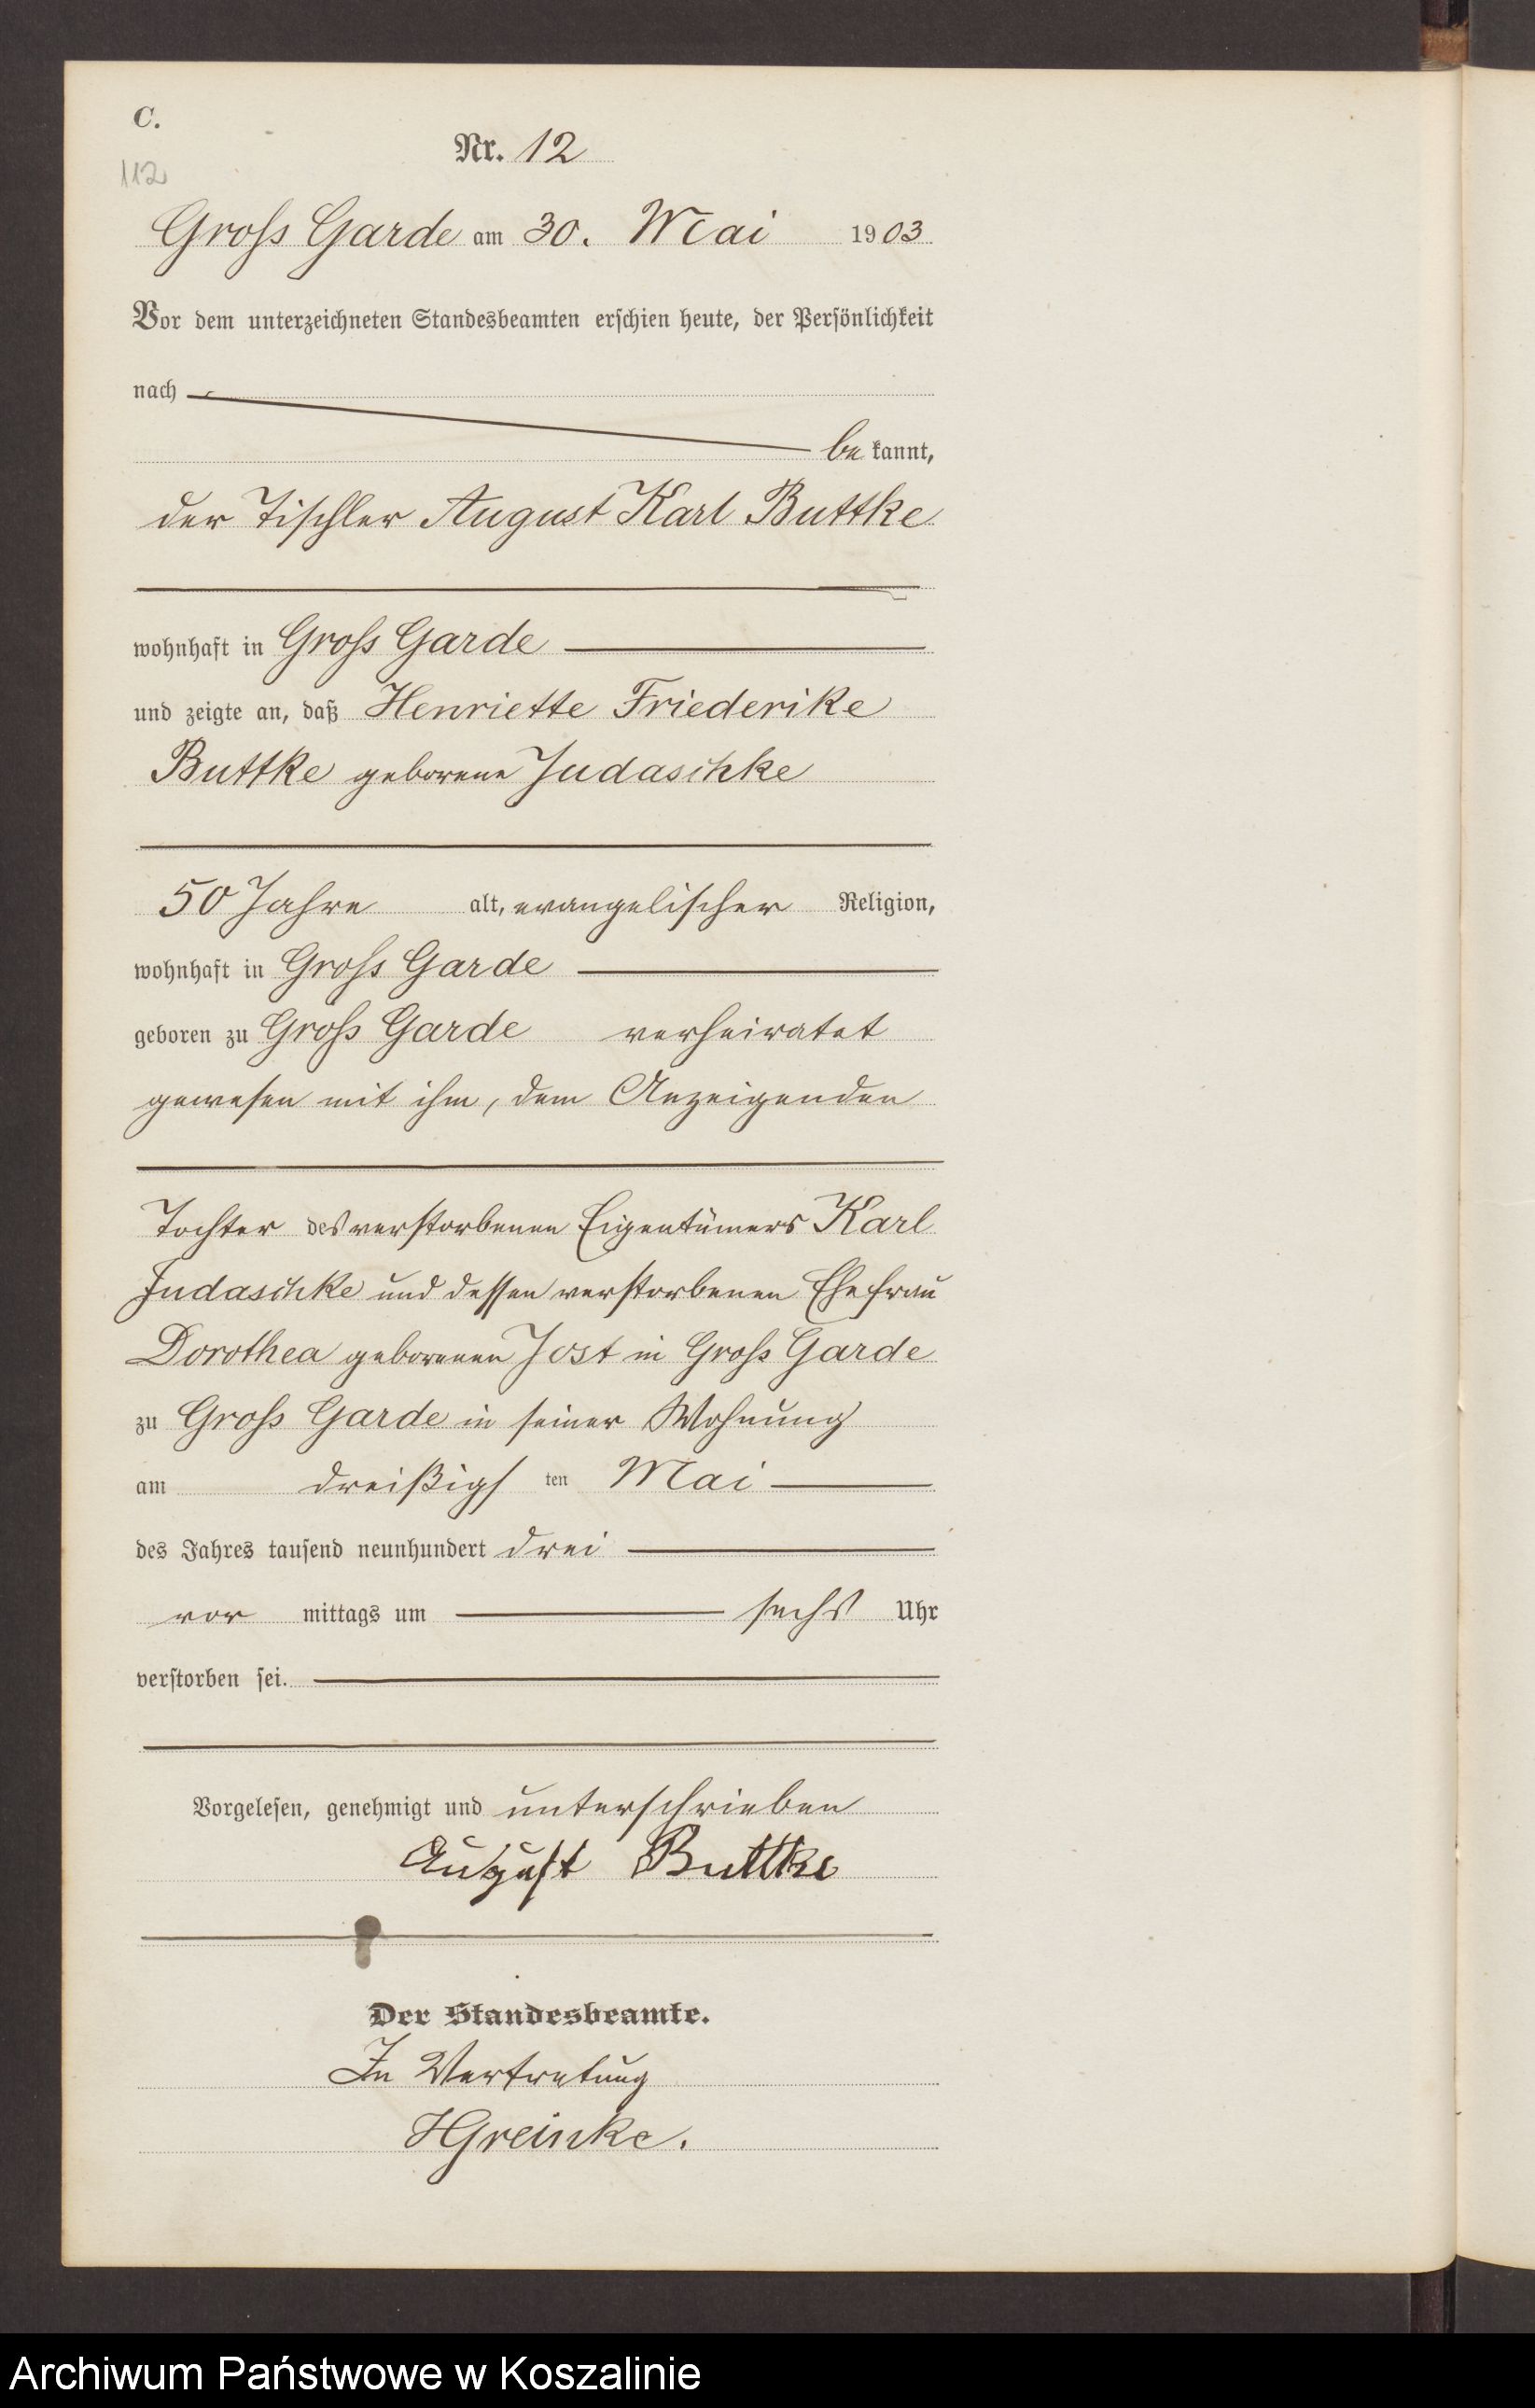 C.
Nr. 12
112
Gross Garde am 30. Mai 1903
Vor dem unterzeichneten Standesbeamten erschien heute, der Persönlichkeit
nach
be kannt,
der Tischler August Karl Buttke
wohnhaft in Gross Garde
und zeigte an, daß Henriette Friederike
Buttke geborene Judaschke
50 Jahre alt, evangelischer Religion,
wohnhaft in Gross Garde
geboren zu Gross Garde verheiratet
gewesen mit ihm, dem Anzeigenden
Tochter des verstorbenen Eigentümers Karl
Judaschke und dessen verstorbenen Ehefrau
Dorothea geborenen Jost in Gross Garde
zu Gross Garde in seiner Wohnung
am dreißigs ten Mai
des Jahres tausend neunhundert drei
vor mittags um sechs Uhr
verstorben sei.
Vorgelesen, genehmigt und unterschrieben
August Buttke
Der Standesbeamte.
In Vertretung
HGreinke.
Archiwum Państwowe w Koszalinie